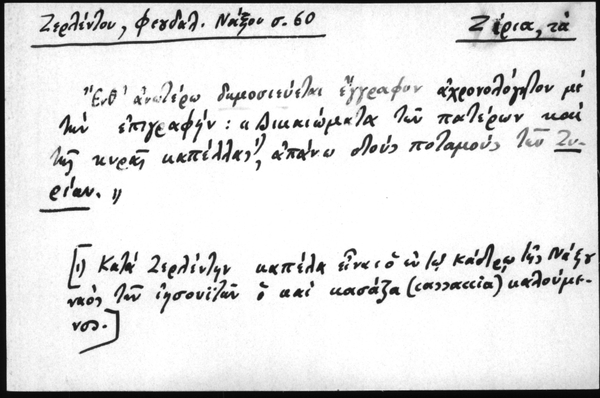 Ζερλέντου, Φεουδαλ. Νάξου σ. 60
Ζύρια, τὰ
Ἔνθ' ἀνωτέρω δημοσιεύεται ἔγγραφον ἀχρονολόγητον μὲ
τὴν ἐπιγραφήν: «Δικαιώματα τῶν πατέρων καὶ
τῆς κυρᾶς καπέλλας¹⁾, ἀπάνω στοὺς ποταμοὺς τῶν Ζυ-
ρίαν.»
[1) Κατὰ Ζερλέντην καπέλα εἶναι ὁ ἐν τῷ κάστρῳ τῆς Νάξου
ναὸς τῶν ἰησουϊτῶν ὁ καὶ κασάζα (cassaccia) καλούμε-
νος.]